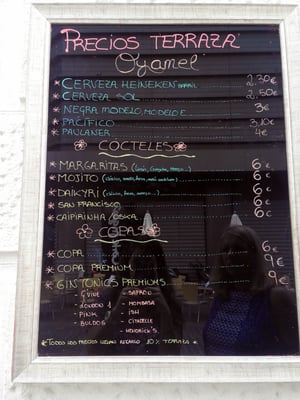 PRECIOS TERRAZA
Oyamel
* CERVEZA HEINEKEN BARRIL 2.30€
* CERVEZA SOL 2,50€
* NEGRA MODELO, MODELO E. 3€
* PACIFICO 3,10€
* PAULANER 4€
COCTELES
* MARGARITAS 6€
* MOJITO 6€
* DAIKYRI 6€
* SAN FRANCISCO 6€
* CAIPIRINHA/OSKA 6€
COPAS
* COPA 6€
* COPA PREMIUM 9€
* GIN TONICS PREMIUMS 9€
- G'VINE - SAFFRO
- LONDON 1 - MOMBASA
- PINK - ISH
- BULDOG - CITADELLE
- HENDRICK'S
* TODOS LOS PRECIOS LLEVAN RECARGO 10% TERRAZA *